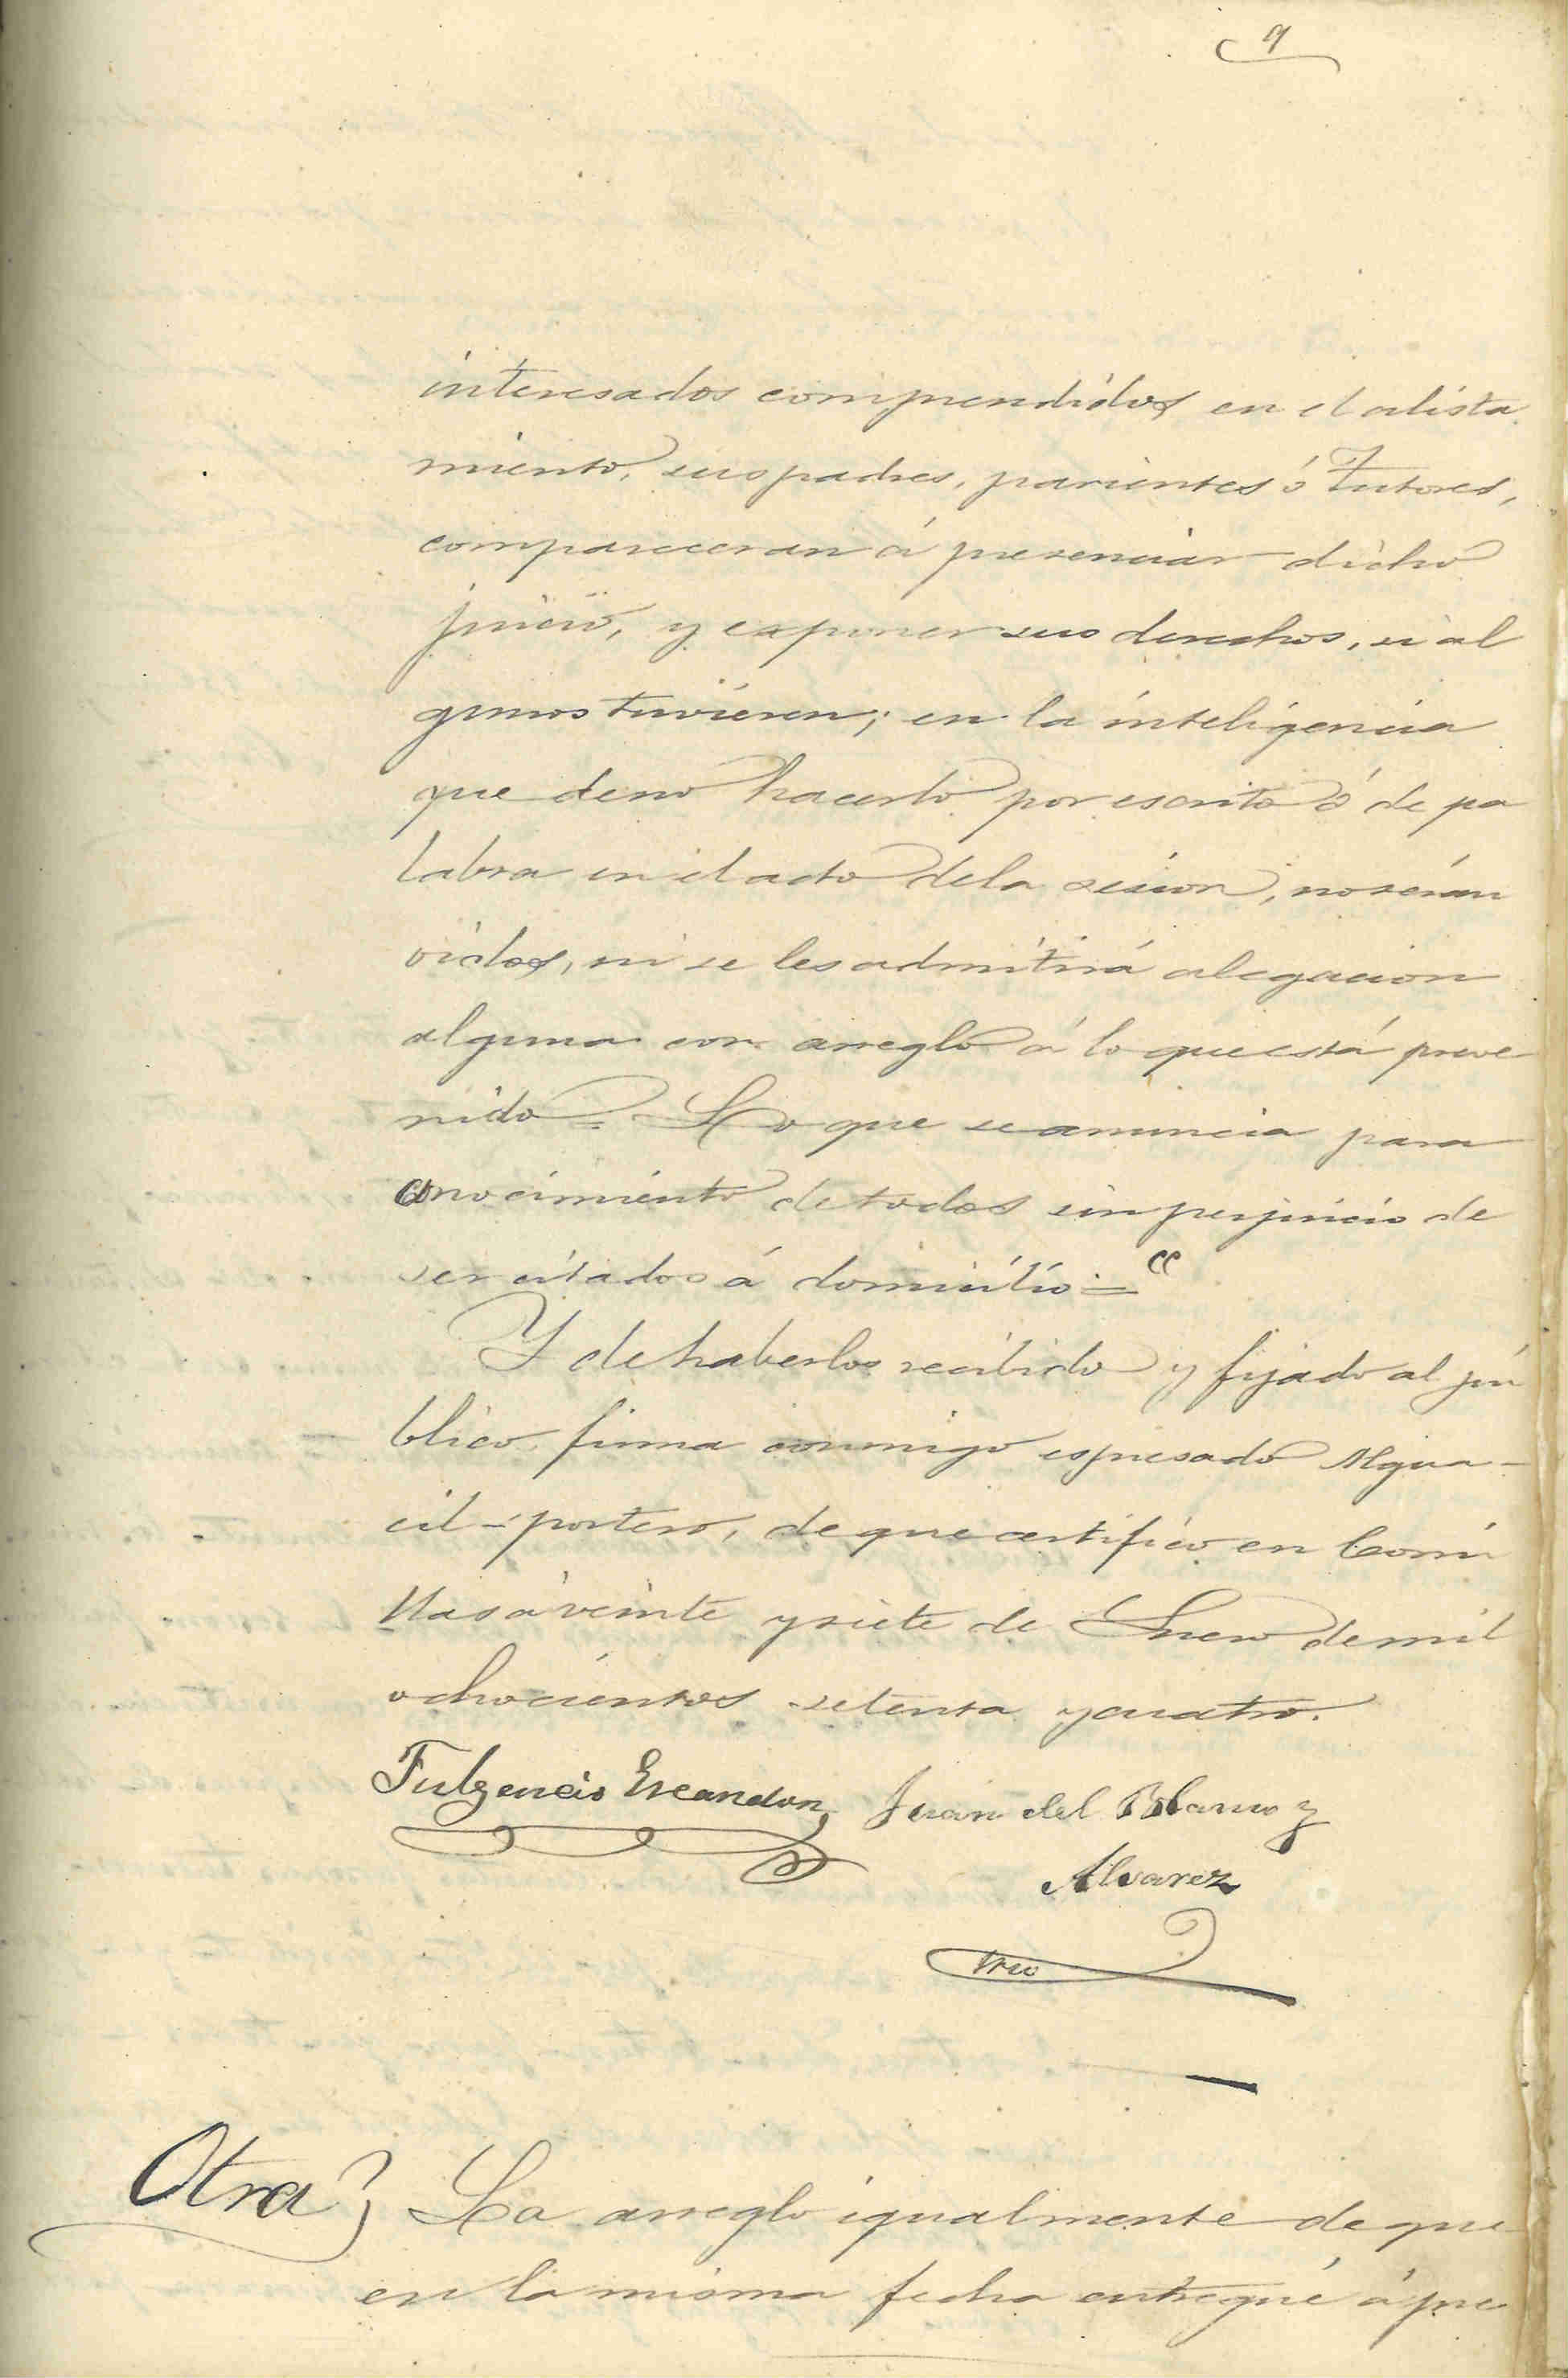 9
interesados comprendidos en el alista
miento, sus padres, parientes ó Tutores,
compareceran á presenciar dicho
juicio, y exponer sus derechos, si al
gunos tuvieren; en la inteligencia
que de no hacerlo por escrito ó de pa
labra en el acto de la sesion, no serán
oidos, ni se les admitirá alegacion
alguna con arreglo á lo que está preve
nido = Lo que se anuncia para
conocimiento de todos sin perjuicio de
ser citados á domicilio = "
Y de haberlos recibido y fijado al pú
blico, firma conmigo espresado Algua-
cil-portero, de que certifico en Comi
llas á veinte y siete de Enero de mil
ochocientos setenta y cuatro.
Fulgencio Escandon Juan del Blanco y
Alvarez
Srio
Otra} La arreglo igualmente de que
en la misma fecha entregué á pre